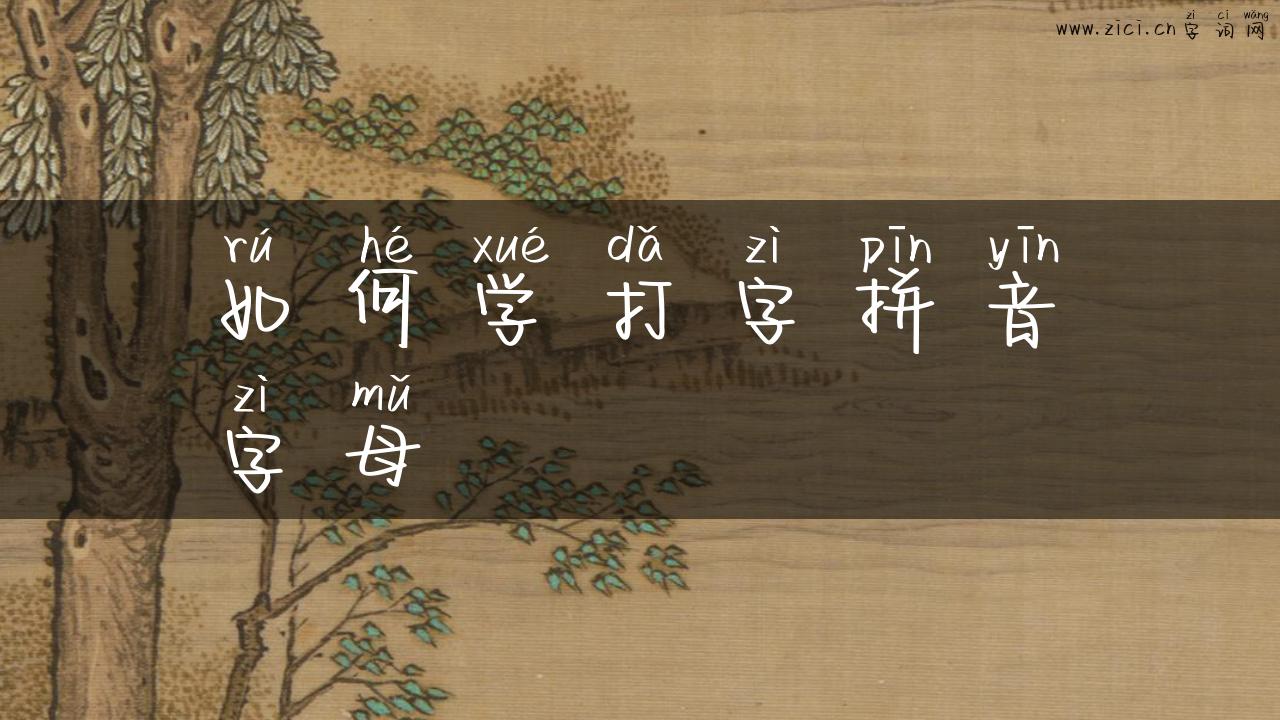 zì cí wǎng
www.zici.cn 字词网
rú hé xué dǎ zì pīn yīn
如何学打字拼音
zì mǔ
字母